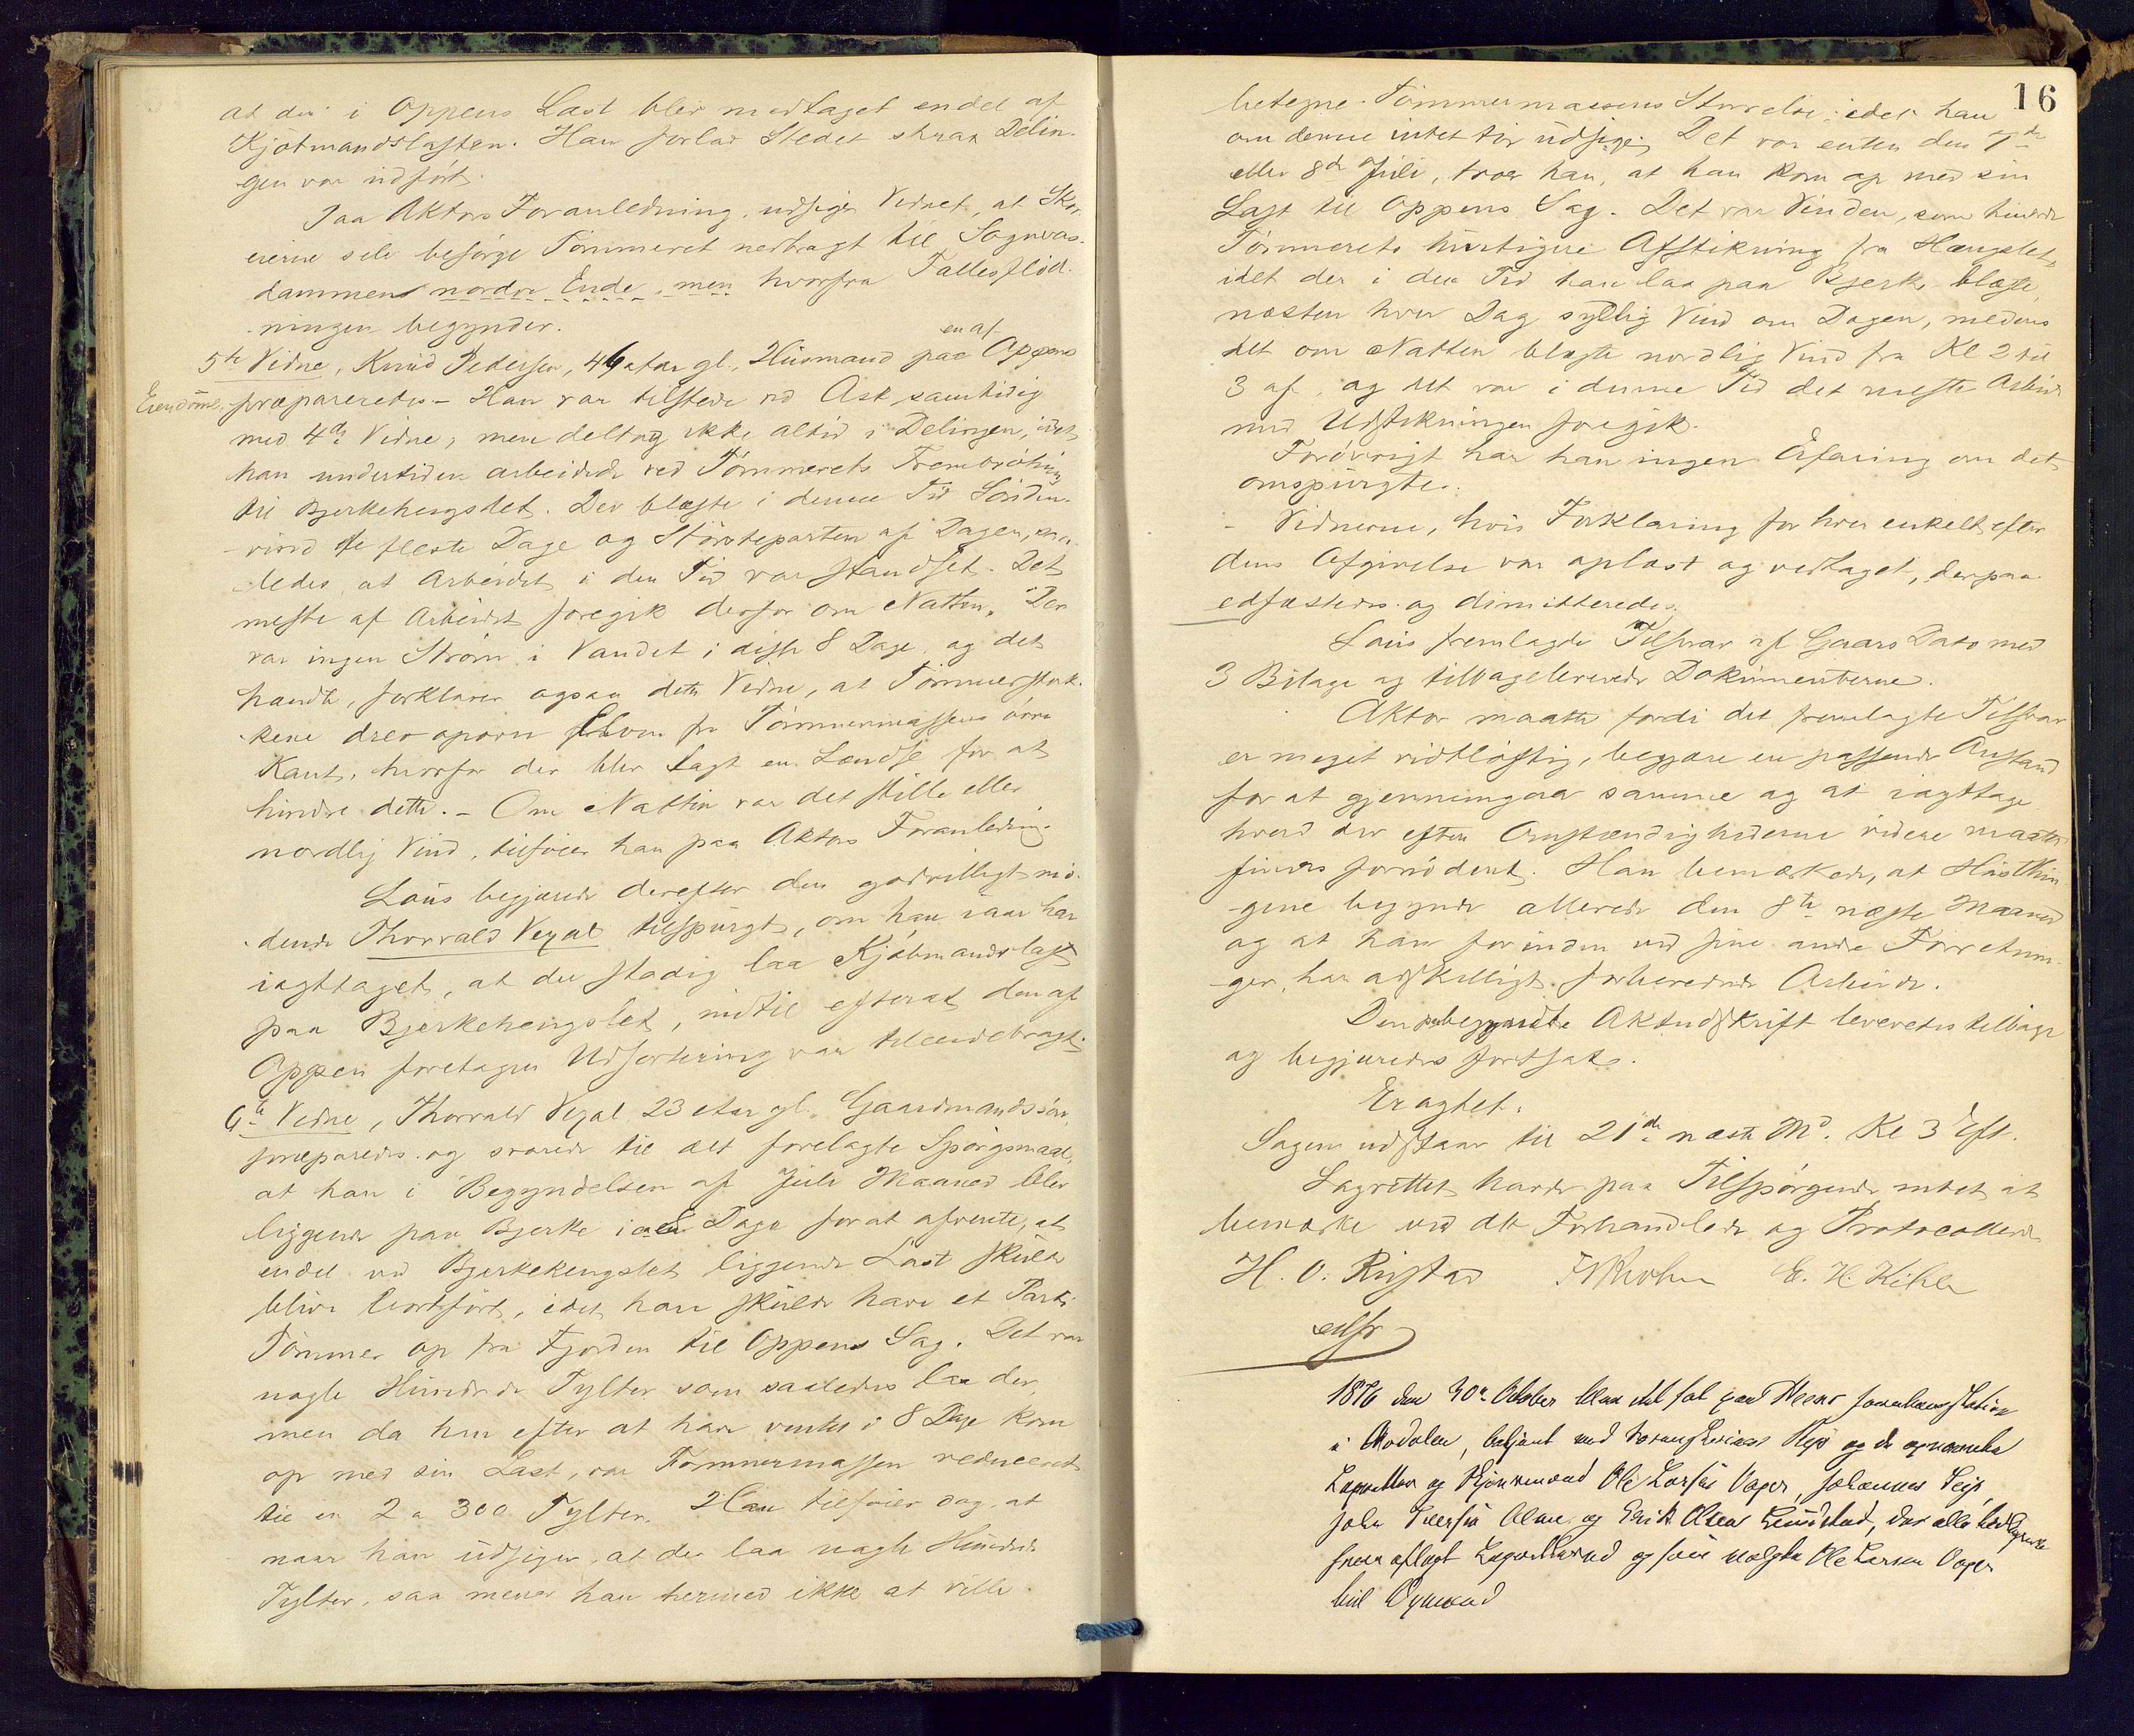 at der i Oppens Last blev medtaget endel af
Kjøbmandslasten. Han forlod Stedet strax Delin-
gen var udført.
Paa Aktors Foranledning udsiger Vidnet, at Skov-
eierne selv besørge Tømmeret nedbragt til Sognvas-
dammens nordre Ende, men hvorfra Fællesflød-
ningen begynder.
5te Vidne, Knud Pedersen, 46 Aar gl., Husmand paa en af Oppens
Eiendomme, præpareredes. Han var tilstede ved Ask samtidig
med 4de Vidne, men deltog ikke altid i Delingen, idet
han undertiden arbeidede ved Tømmerets Frembrøtning
til Bjerkehengslet. Der blæste i denne Tid Sønden-
vind de fleste Dage og Størsteparten af Dagen, saa-
ledes at Arbeidet i den Tid var standset. Det
meste af Arbeidet foregik derfor om Natten. Der
var ingen Strøm i Vandet i disse 8 Dage og det
hændte, forklarer ogsaa dette Vidne, at Tømmerstok-
kene drev opover fra Tømmermassens øvre
Kant, hvorfor der blev lagt en Lændse for at
hindre dette. - Om Natten var det stille eller
nordlig Vind, tilføier han paa Aktors Foranledning.
Lous begjærede derefter den godvilligt mø-
dende Thorvald Vegal tilspurgt, om han iaar har
iagttaget, at der stadig laa Kjøbmandslast
paa Bjerkehengslet, indtil efterat den af
Oppen foretagne Udsortering var tilendebragt.
6te Vidne, Thorvald Vegal 23 Aar gl. Gaardmandssøn,
præparedes og svarede til det forelagte Spørgsmaal,
at han i Begyndelsen af Juli Maaned blev
liggende paa Bjerke i 8 Dage for at afvente, at
endel ved Bjerkehengslet liggende Last skulde
blive bortført, idet han skulde have et Parti
Tømmer op fra Fjorden til Oppens Sag. Det var
nogle Hundrede Tylter som saaledes laa der,
men da han efter at have ventet i 8 Dage kom
op med sin Last, var Tømmermassen reduceret
til en 2 a 300 Tylter. Han tilføier dog, at
naar han udsiger, at der laa nogle Hundrede
Tylter, saa mener han hermed ikke at ville
16
betegne Tømmermassens Størrelse, idet han
om denne intet tør udsige. Det var enten den 7de
eller 8de Juli, troer han, at han kom op med sin
Last til Oppens Sag. Det var Vinden, som hindrede
Tømmerets hurtigere Afstikning fra Hængslet,
idet der i den Tid han laa paa Bjerke blæste
næsten hver Dag sydlig Vind om Dagen, medens
det om Natten blæste nordlig Vind fra Kl 2 til
3 af, og det var i denne Tid det meste Arbeide
med Udstikningen foregik.
Forøvrigt har han ingen Erfaring om det
omspurgte.
- Vidnerne, hvis Forklaring for hver enkelt efter
dens Afgivelse var oplæst og vedtaget, derpaa
edfæstedes og dimitteredes.
Lous fremlagde Tilsvar af Gaars Dato med
3 Bilage og tilbageleverede Dokumenterne.
Aktor maatte fordi det fremlagte Tilsvar
er meget vidtløftig, begjære en passende Anstand
for at gjennemgaa samme og at iagttage
hvad der efter Omstændighederne videre maatte
findes fornødent. Han bemærkede, at Høstthin-
gene begynde allerede den 8de næste Maaned
og at han forinden ved sine andre Forretnin-
ger, har adskilligt forberedende Arbeide.
Den paabegyndte Aktudskrift leveredes tilbage
og begjæredes fortsat.
Eragtet:
Sagen udstaar til 21de næste Md. Kl 3 Eft.
Lagrettet havde paa Tilspørgende intet at
bemærke ved det Forhandlede og Protocollerede
H. O. Ristad E. H. Kihle
1876 den 30te October blev Ret sat paa Moens
i Aadalen, betjent med og de opnævnte
Ole Larsen Vager, Johannes
John Iversen og Erik Olsen, der alle
aflagt og som valgte Ole Larsen Vager
til